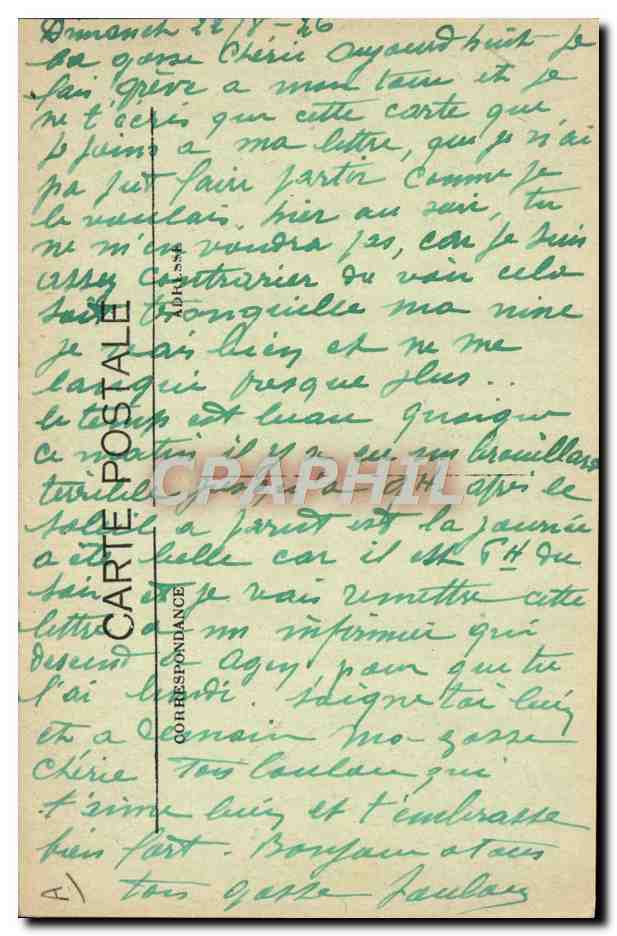 Dimanch 22/8-26
ma gosse Chérie aujourd huit je
fais grève a mon tour et je
ne t'écris que cette carte que
je joins a ma lettre, que je n'ai
pa put faire partir comme je
le voulais hier au soir, tu
ne m'en voudra pas, car je suis
assez contrarier de voir cela
soit tranquille ma nine
je vais bien et ne me
langui presque plus..
le temps est beau quoique
ce matin il y a eu un brouillard
terrible jusqu'a 9H après le
soleil a parut et la journée
a été belle car il est 5H du
soir et je vais remettre cette
lettre a un infirmier qui
descend a Agen pour que tu
l'ai lundi. Soigne toi bien
et a demain ma gosse
chérie ton loulou qui
t'aime bien et t'embrasse
bien fort. Bonjour a tous
ton gosse Loulou
A)
CARTE POSTALE
CORRESPONDANCE
ADRESSE
CPAPHIL